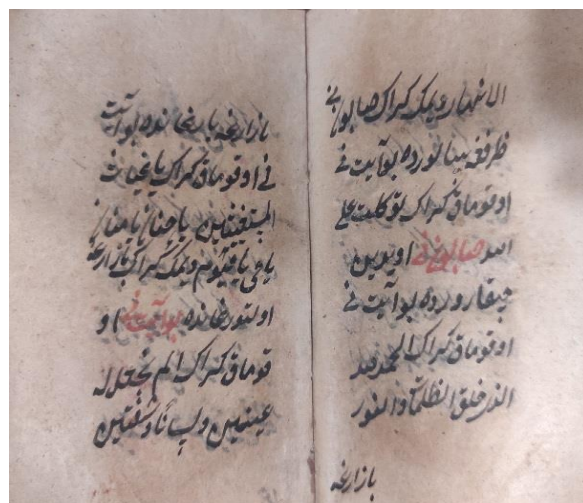 الانهار دیمک کراک صابون نی
ظرفغه سالورده بو آیت نی
اوقوماق کراک توکلت علی
الله صابون نی اویدین
چیقارورده بو آیت نی
اوقوماق کراک الحمد لله
الذی خلق الظلمات والنور
بازارغه
بازارغه بارغانده بو آیت
نی اوقوماق کراک یا غیاث
المستغیثین یا حنان یا منان
یا حی یا قیوم دیمک کراک بازارغه
اولتورغانده بو آیت نی او
قوماق کراک الم نجعل له
عینین ولسانا وشفتین